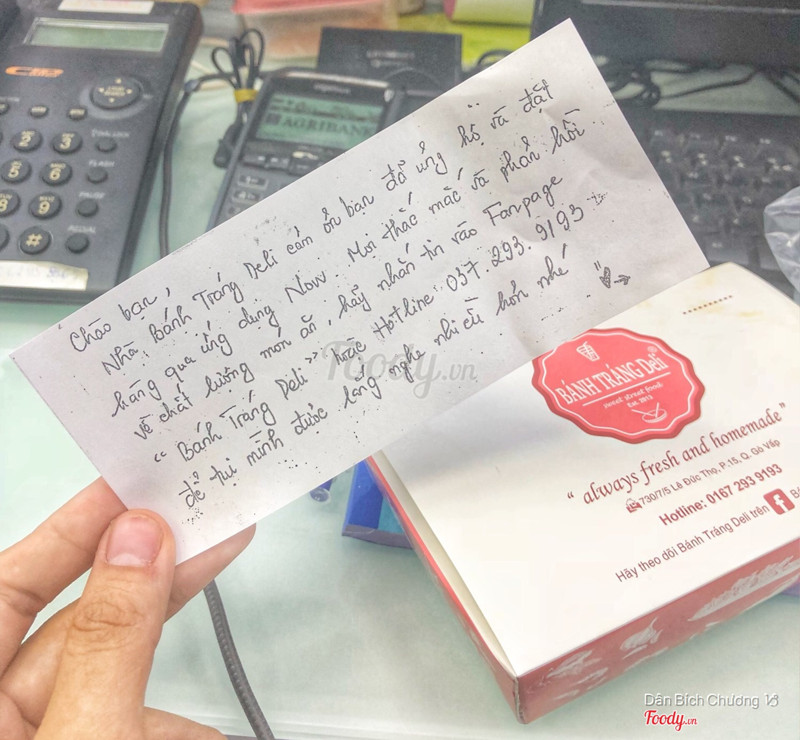 Chào bạn,
Nhà Bánh Tráng Deli cảm ơn bạn đã ủng hộ và đặt
hàng qua ứng dụng Now. Mọi thắc mắc và phản hồi
về chất lượng món ăn, hãy nhắn tin vào Fanpage
" Bánh Tráng Deli >> hoặc Hotline: 037.293.9193
để tụi mình được lắng nghe nhiều hơn nhé
AGRIBANK
BÁNH TRÁNG Deli
sweet street food
Est. 2013
" always fresh and homemade"
730/7/5 Lê Đức Thọ, P.15, Q. Gò Vấp
Hotline: 0167 293 9193
Hãy theo dõi Bánh Tráng Deli trên f
2 3
5 6
8 9
#
FLASH
PAUSE
Foody.vn
Dân Bích Chương
Foody.vn